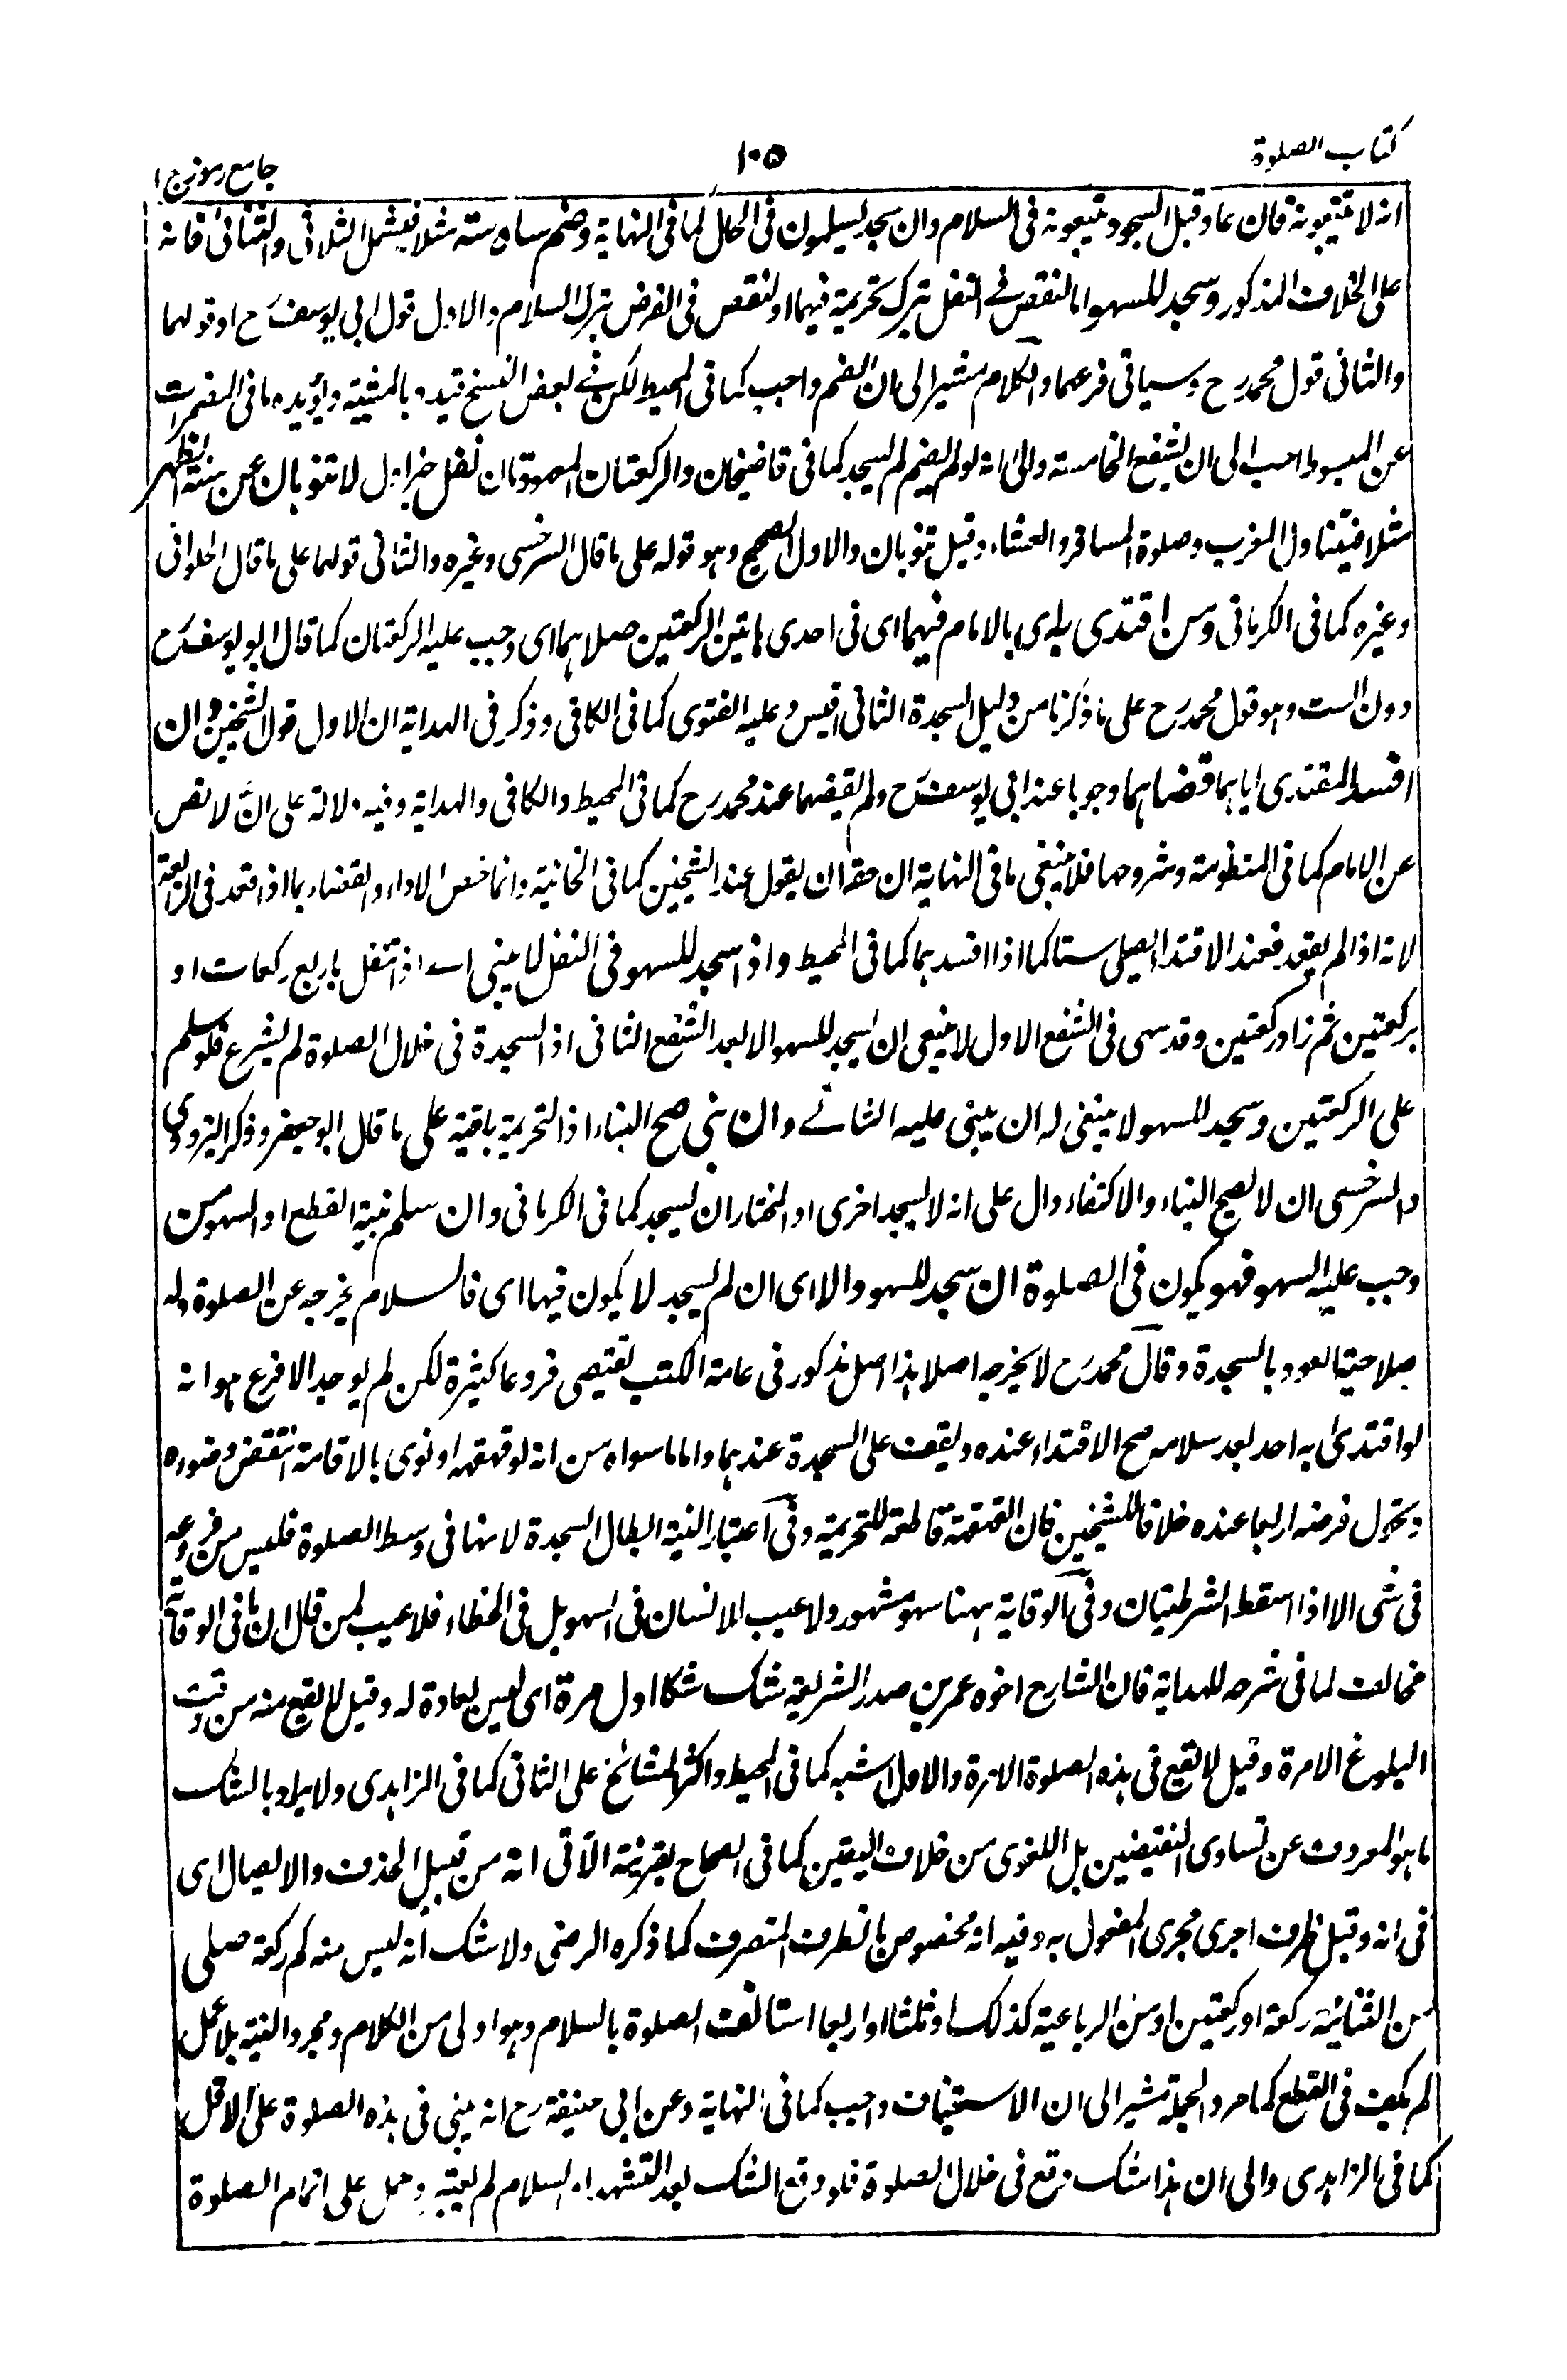 كتاب الصلوة
١٠٥
جامع رموز ج ١
انه لا يتبعونه فان عاد قبل السجود يتبعونه فى السلام وان سجد يسلمون فى الحال كما فى النهاية وضم سادسته مثلا فيشمل الثلاثى والثنائى فانه
على الخلاف المذكور وسجد للسهو اما لنقص فى النفل بترك تحريمة فيهما او لنقص فى الفرض بترك السلام والاول قول ابى يوسف رح او قولهما
والثانى قول محمد رح وسياتى فرعهما والكلام مشير الى ان الضم واجب كما فى المحيط لكن فى بعض النسخ قيده بالمشية ويؤيده ما فى المضمرات
عن المبسوط احب الى ان يشفع الخامسة والى انه لو لم يضم لم يسجد كما فى قاضيخان والركعتان المسهوتان نفل خبر اول لا تنوبان عن سنته الظهر
مثلا فيتناول المغرب وصلوة المسافر والعشاء وقيل تنوبان والاول الصحيح وهو قوله على ما قال السرخسى وغيره والثانى قولهما على ما قال الحلوانى
وغيره كما فى الكرمانى ومن اقتدى به اى بالامام فيهما اى فى احدى هاتين الركعتين صلاهما اى وجب عليه الركعتان كما قال ابو يوسف رح
دون الست وهو قول محمد رح على ما ذكرنا من دليل السجدة الثانى اقيس وعليه الفتوى كما فى الكافى وذكر فى الهداية ان الاول قول الشيخين وان
افسد المقتدى اياهما قضاهما وجوبا عند ابى يوسف رح ولم يقضهما عند محمد رح كما فى المحيط والكافى والهداية وفيه دلالة على ان لا نص
عن الامام كما فى المنظومة وشروحها فلا ينبغى ما فى النهاية ان حقه ان يقول عند الشيخين كما فى الخانية وانما خص الاداء والقضاء بما اذا قعد فى الرابعة
لانه اذا لم يقعد فعند الاقتداء يصلى ستا كما اذا افسد بها كما فى المحيط واذا سجد للسهو فى النفل لا يبنى اى اذا تنفل باربع ركعات او
بركعتين ثم زاد ركعتين وقد سهى فى الشفع الاول لا ينبغى ان يسجد للسهو الا بعد الشفع الثانى اذ السجدة فى خلال الصلوة لم يشرع فلو سلم
على الركعتين وسجد للسهو لا ينبغى له ان يبنى عليه الثانى وان بنى صح البناء اذ التحريمة باقية على ما قال ابو جعفر وذكر البزدوى
والسرخسى ان لا يصح البناء والاكتفاء دال على انه لا يسجد اخرى او المختار ان يسجد كما فى الكرمانى وان سلم بنية القطع او السهو من
وجب عليه السهو فهو يكون فى الصلوة ان سجد للسهو والا اى ان لم يسجد لا يكون فيها اى فالسلام يخرجه عن الصلوة وله
صلاحية العود بالسجدة وقال محمد رح لا يخرجه اصلا هذا اصل مذكور فى عامة الكتب يقتضى فروعا كثيرة لكن لم يوجد الا فرع هو انه
لو اقتدى به احد بعد سلامه صح الاقتداء عنده ويقف على السجدة عندهما واما ما سواه من انه لو قهقهه او نوى بالاقامة انتقض وضوءه
ويتحول فرضه اربعا عنده خلافا للشيخين فان القهقهة قاطعة للتحريمة وفى اعتبار النية ابطال السجدة لانها فى وسط الصلوة فليس من فروعه
فى شى الا اذا اسقط الشرطيتان وفى الوقاية ههنا سهو مشهور ولا عيب للانسان فى السهو بل فى الخطاء فلا عيب لمن قال ان ما فى الوقاية
مخالف لما فى شرحه للهداية فان الشارح اخوه عمر بن صدر الشريعة شك شكا اول مرة اى ليس بعادة له وقيل لا يقع منه من وقت
البلوغ الا مرة وقيل لا يقع فى هذه الصلوة الا مرة والاول اشبه كما فى المحيط واكثر المشائخ على الثانى كما فى الزاهدى ولا يراد بالشك
ما هو المعروف عن تساوى النقيضين بل اللغوى من خلاف اليقين كما فى الصحاح بقرينة الآتى انه من قبيل الحذف والايصال اى
فى انه وقيل ظرف اجرى مجرى المفعول به وفيه انه مخصوص بالظرف المتصرف كما ذكره الرضى ولا شك انه ليس منه كم ركعة صلى
من الثنائية ركعة او ركعتين او من الرباعية كذلك او ثلثا او اربعا استانف الصلوة بالسلام وهو اولى من الكلام ومجرد النية بلا عمل
لم يكف فى القطع كما مر والجملة مشير الى ان الاستيناف واجب كما فى النهاية وعن ابى حنيفة رح انه يبنى فى هذه الصلوة على الاقل
كما فى الزاهدى والى ان هذا شك وقع فى خلال الصلوة فلو وقع الشك بعد التشهد او السلام لم يعتبر وحمل على اتمام الصلوة